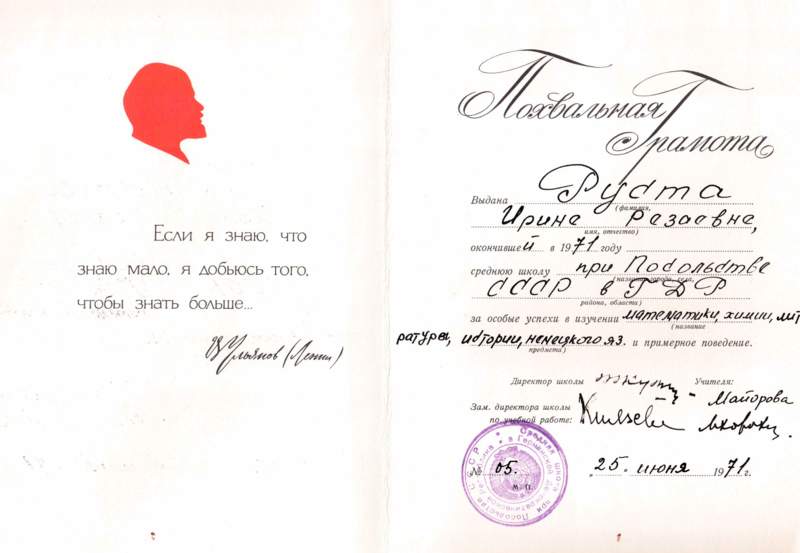 Если я знаю, что
знаю мало, я добьюсь того,
чтобы знать больше...
В Ульянов (Ленин)
Похвальная
Грамота
Выдана Рузта
(фамилия,
Ирине Резаевне,
имя, отчество)
окончившей в 1971 году
среднюю школу при Посольстве
(название города, села,
СССР в ГДР
района, области)
за особые успехи в изучении математики, химии, лите
(название
ратуры, истории, немецкого яз. и примерное поведение.
предмета)
Директор школы Учителя:
Майорова
Зам. директора школы
по учебной работе:
№ 05.
М. П.
"25" июня 1971 г.
Средняя школа при Посольстве СССР
в Германской